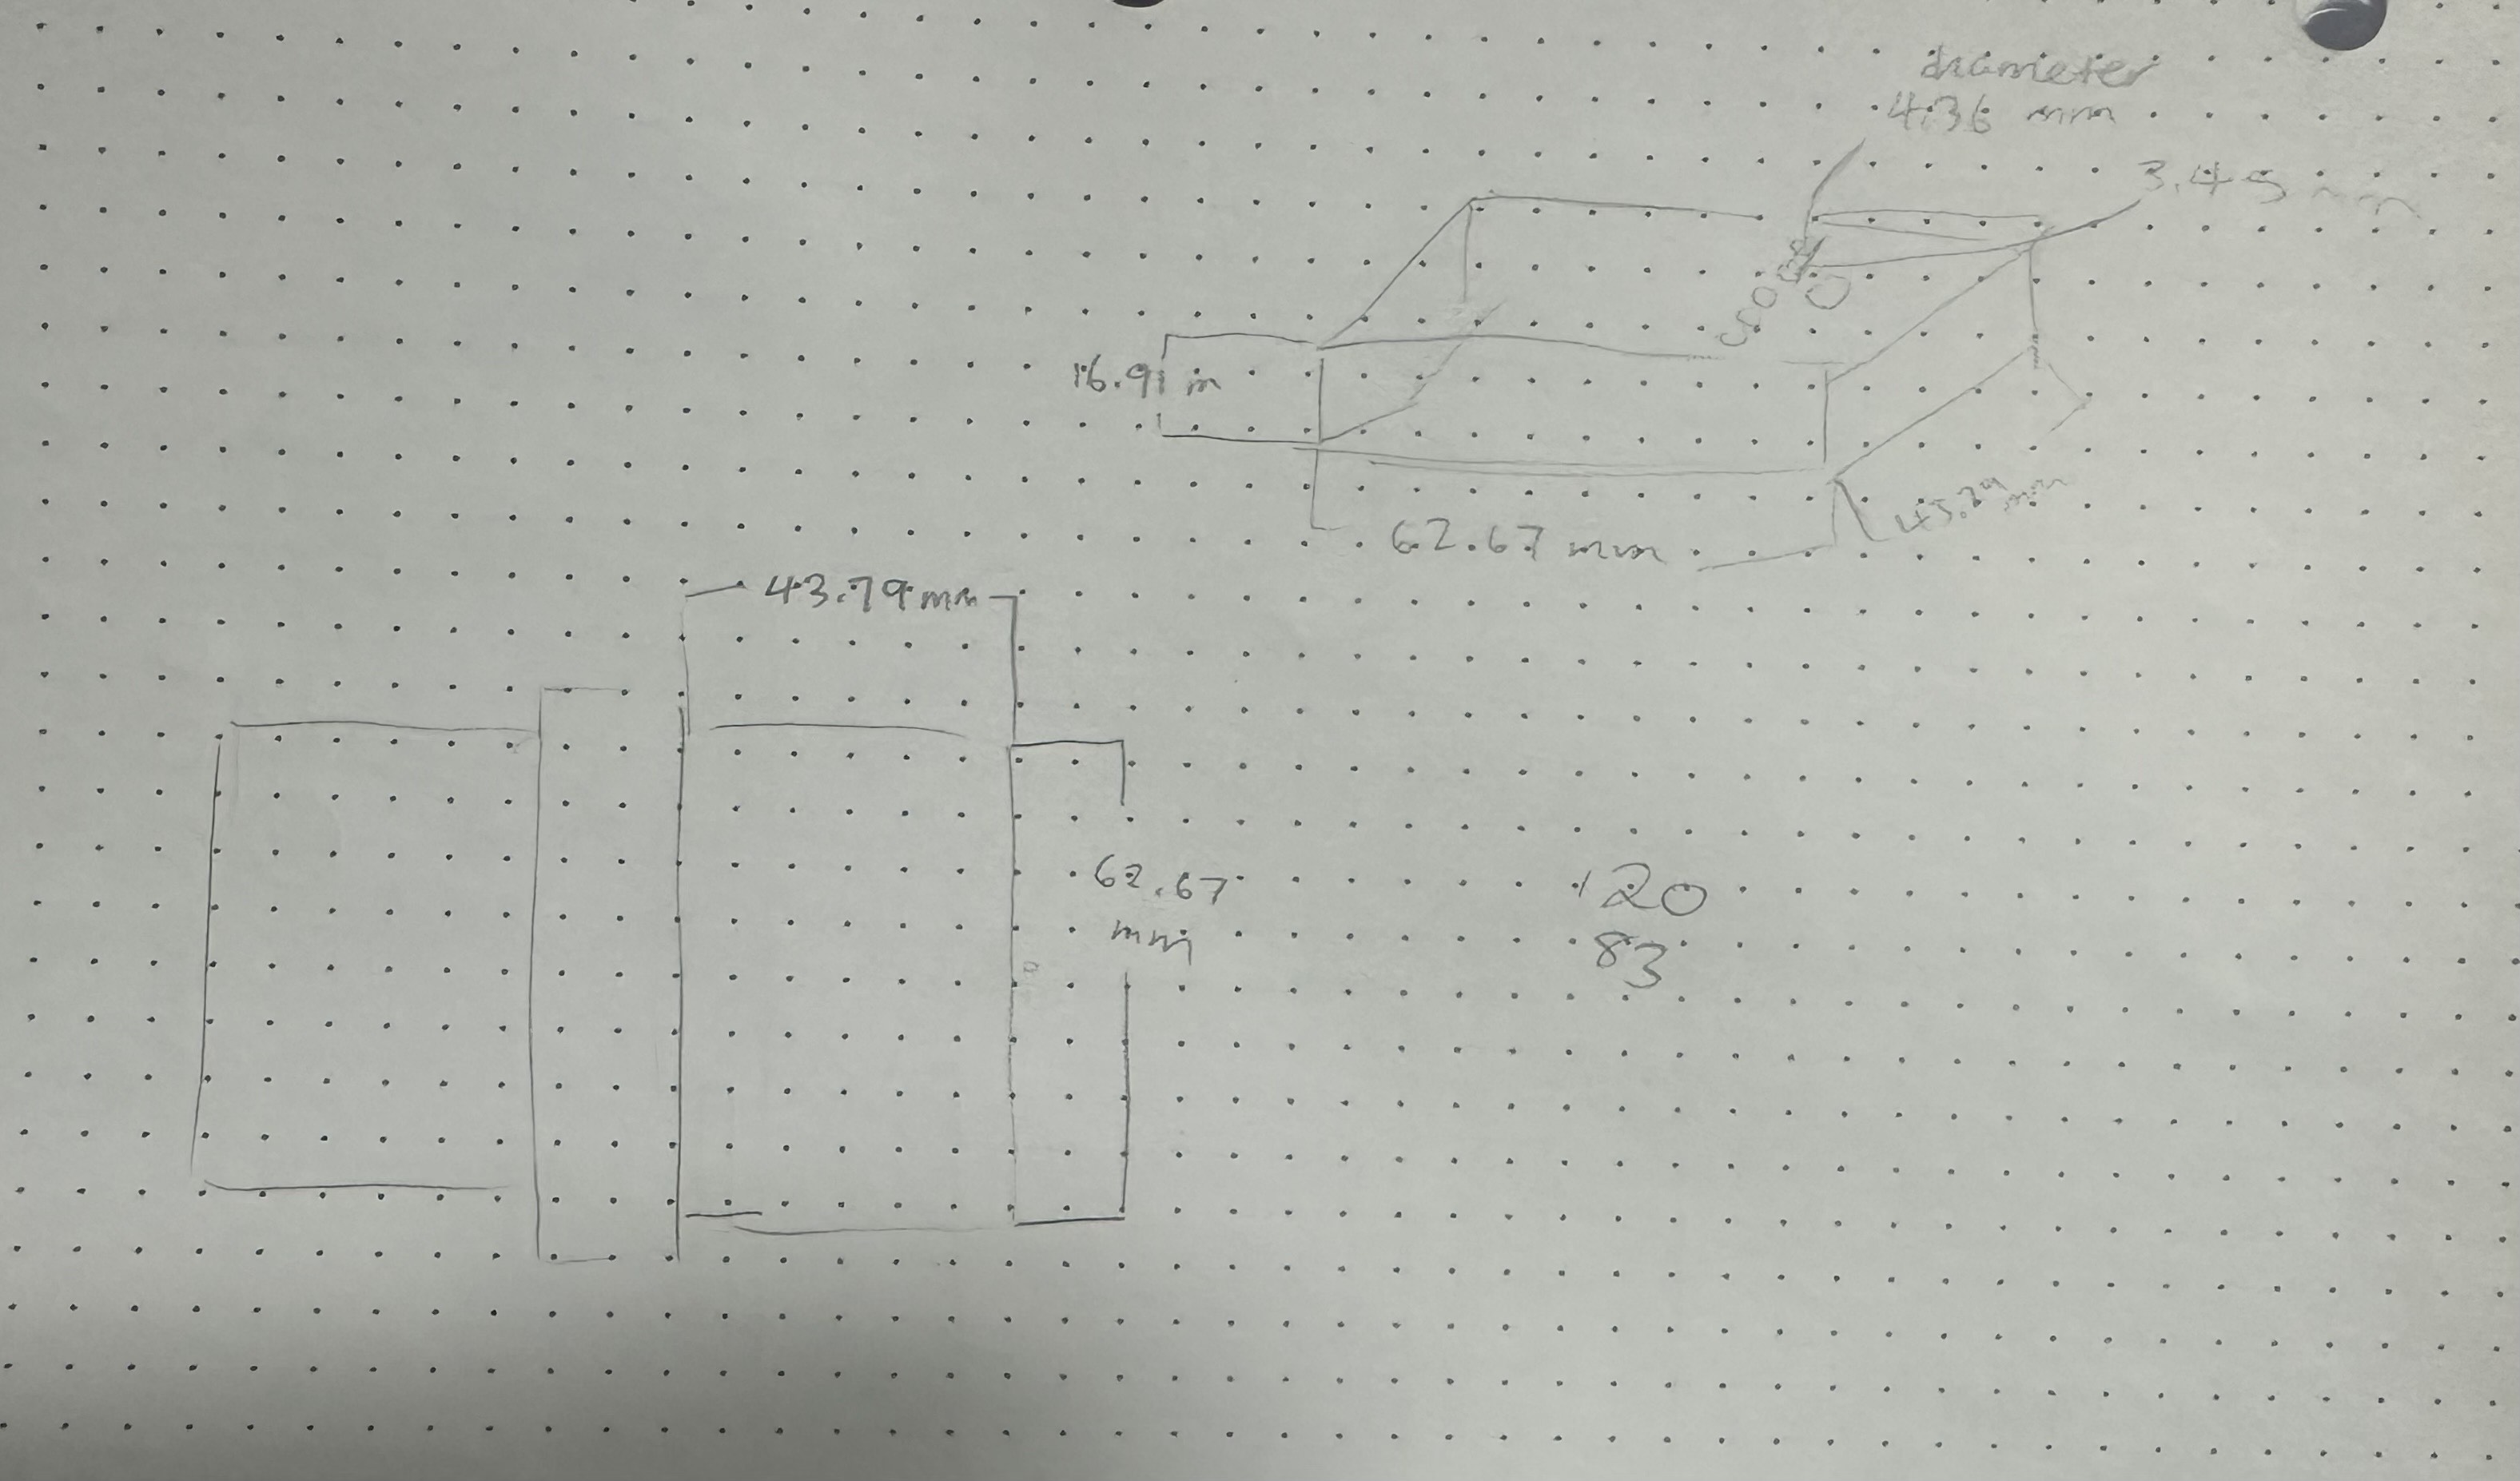 diameter
4.36 mm
3.45 mm
16.91 m
62.67 mm
43.79 mm
62.67
mm
120
83